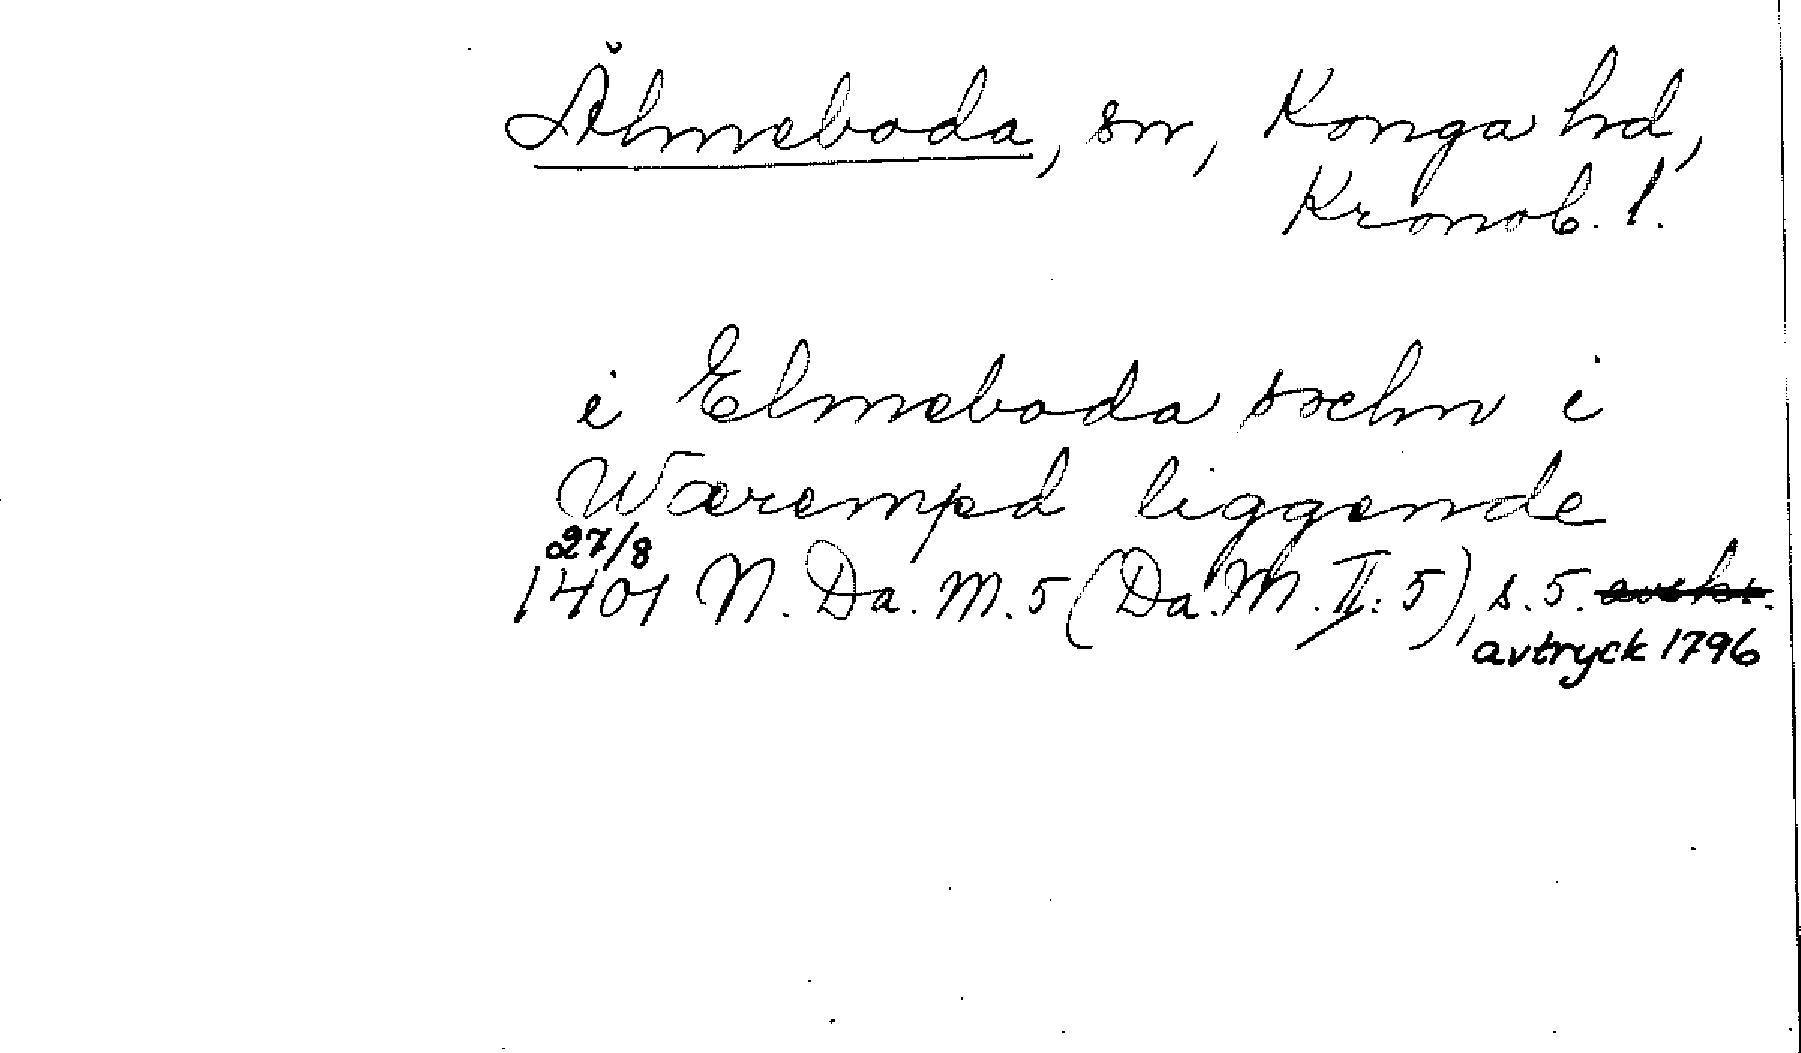 Älmeboda, sn, Konga hd,
Kronob. l.
i Elmeboda sochn i
Wærempd liggende
27/8
1401 N. Da. M. 5 (Da. M. II: 5), s. 5. avskr.
avtryck 1796